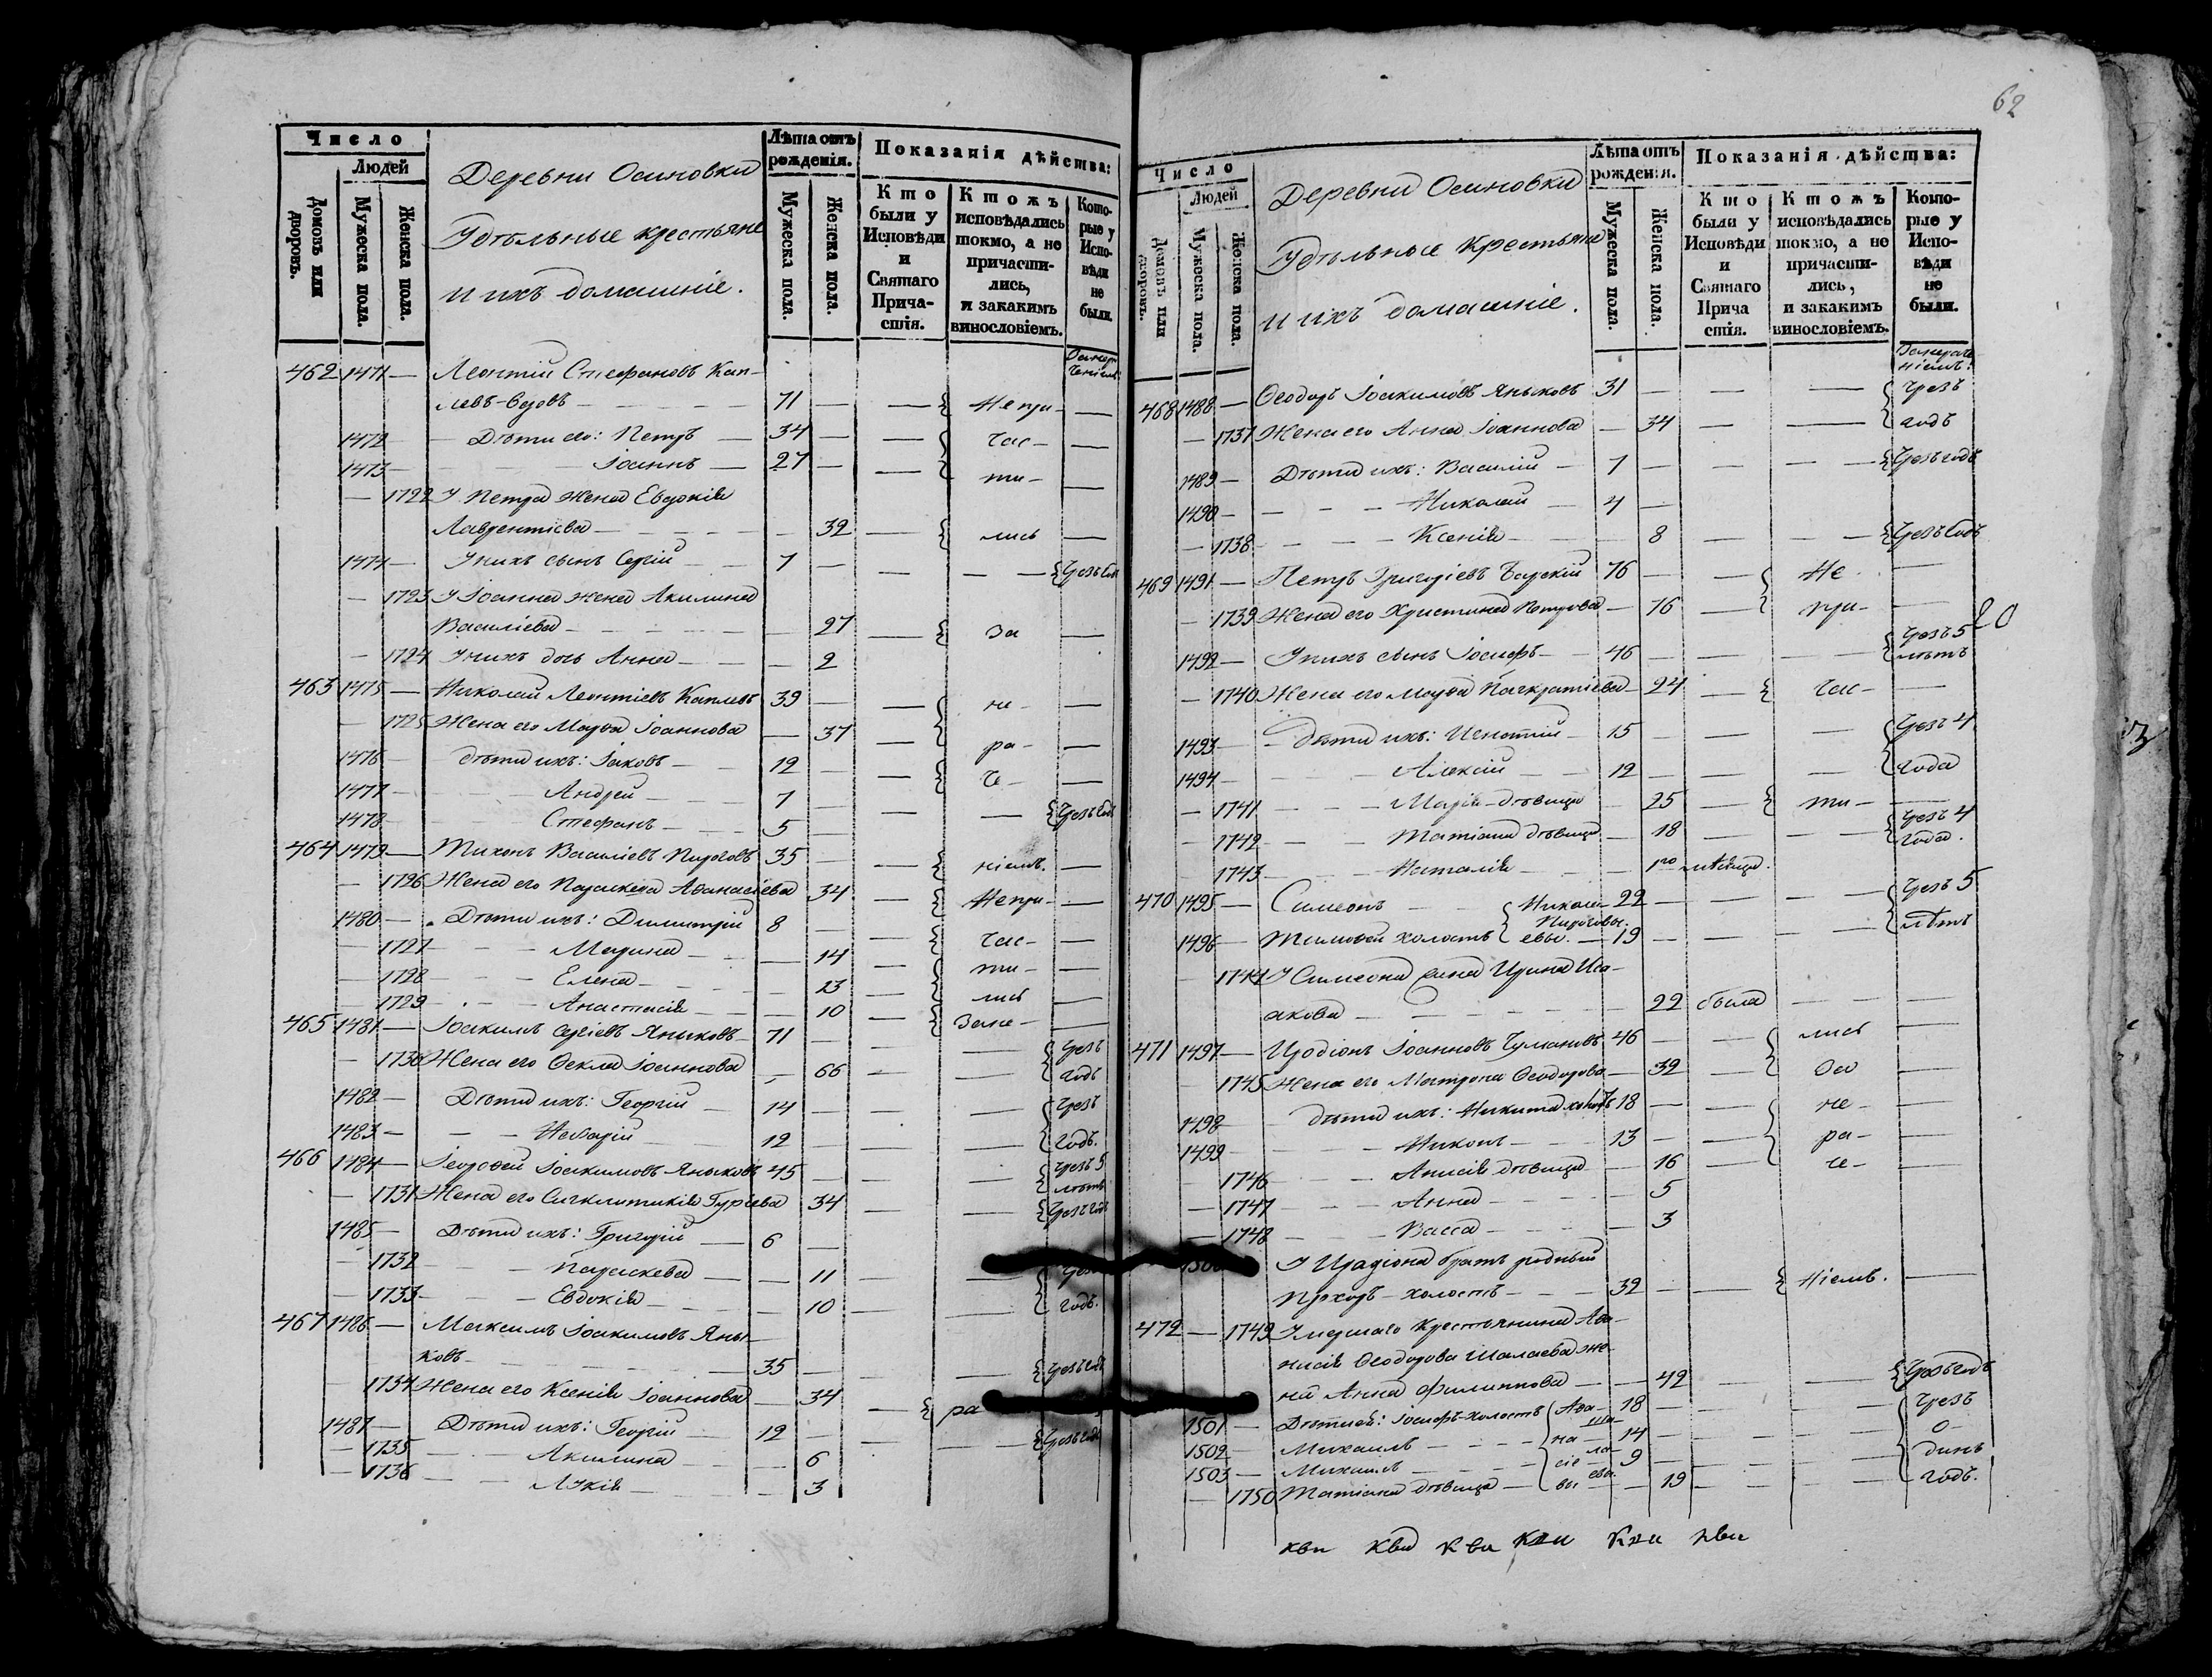 62
Число
Людей
Домовъ или дворовъ.
Мужеска пола.
Женска пола.
Деревни Осиновки
Удѣльные крестьяне
и ихъ домашніе.
Лѣта отъ рожденія.
Мужеска пола.
Женска пола.
Показанія дѣйства:
Кто были у Исповѣди и Святаго Прича-стія.
Ктожъ исповѣдались токмо, а не причасти-лись, и закакимъ винословіемъ.
Кото-рые у Испо-вѣди не были.
462 1471 — Леонтій Стефановъ Кап-
71 — — Непри- —
1472 — Дѣти его: Петръ — 34 — — час- —
1473 — Іоаннъ — 27 — — ти- —
— 1722 У Петра жена Евдокія
Лаврентіева — 32 — лись —
1474 — У нихъ сынъ Сергій — 7 — — — Чрезъ год
— 1723 У Іоанна жена Акилина
Василіева — — 27 — за —
— 1724 У нихъ дочь Анна — — 2
463 1475 — Николай Леонтіевъ Каплевъ 39 — — не- —
— 1725 Жена его Марѳа Іоаннова — 37 — ра- —
1476 — Дѣти ихъ: Іаковъ — 12 — — че- —
1477 — Андрей — 7 — — — Чрезъ год
1478 — Стефанъ — 5 —
464 1479 — Тихонъ Василіевъ Пироговъ 35 — — ніемъ. —
— 1726 Жена его Параскева Аѳанасіева 34 — Непри- —
1480 — Дѣти ихъ: Димитрій 8 — — час- —
— 1727 — Марина — — 14 — ти- —
— 1728 — Елена — — 13 — лись —
— 1729 — Анастасія — — 10 — Зане- —
465 1481 — Іоакимъ Сергіевъ Яныковъ — 71 — — — Чрезъ
— 1730 Жена его Ѳекла Іоаннова — 66 — — годъ
1482 — Дѣти ихъ: Георгій — 14 — — Чрезъ
1483 — Нестарій — 12 — — — годъ.
466 1484 — Іоакимовъ Яныковъ 45 — — — Чрезъ 5 лѣтъ
— 1731 Жена его Сигклитикія Гуріева 34 — — Чрезъ год
1485 — Дѣти ихъ: Григорій — 6 —
— 1732 — Параскева — — 11 — — Чрез
— 1733 — Евдокія — — 10 — — годъ.
467 1486 — Максимъ Іоакимовъ Яны-
ковъ — 35 — — Чрезъ год
1734 Жена его Ксенія Іоаннова — 34 — ра
1487 — Дѣти ихъ: Георгій — 12 — — — Чрезъ годъ
— 1735 — Акилина — — 6
— 1736 — Лукія — — 3
Число
Людей
Домовъ или дворовъ.
Мужеска пола.
Женска пола.
Деревни Осиновки
Удѣльные Крестьяне
и ихъ домашніе.
Лѣта отъ рожденія.
Мужеска пола.
Женска пола.
Показанія дѣйства:
Кто были у Исповѣди и Святаго Прича стія.
Ктожъ исповѣдались токмо, а не причасти-лись, и закакимъ винословіемъ.
Кото-рые у Испо-вѣди не были.
468 1488 — Ѳеодоръ Іоакимовъ Яныковъ 31 — — — Чрезъ
— 1737 Жена его Анна Іоаннова — 34 — — годъ
1489 — Дѣти ихъ: Василій — 7 — — — Чрезъ годъ
1490 — Николай — 4 —
— 1738 — Ксенія — — 8 — — Чрезъ годъ
469 1491 — Петръ Григоріевъ Барскій 76 — — Не —
— 1739 Жена его Христина Петрова — 76 — при- —
1492 — У нихъ сынъ Іосифъ — 46 — — — Чрезъ 5 лѣтъ
20
— 1740 Жена его Марѳа Панкратіева — 24 — час- —
1493 — Дѣти ихъ: Игнатій — 15 — — — Чрезъ 4
1494 — Алексій — 12 — — — года
— 1741 — Марія дѣвица — 25 — ти- —
— 1742 — Татіана дѣвица — 18 — — Чрезъ 4 года.
— 1743 — Наталія — 1го мѣсяца.
470 1495 — Симеонъ — Никола- 22 — — — Чрезъ 5
Пироговы.
1496 — Тимоѳей холостъ евы. — 19 — — — лѣтъ
— 1744 У Симеона жена Ирина Иса-
акова — — 22 была — —
471 1497 — Иродіонъ Іоанновъ Чумаковъ 46 — — лись —
— 1745 Жена его Матрона Ѳеодорова — 39 — За —
1498 — Дѣти ихъ: Никита холостъ 18 — — не- —
1499 — Никонъ — 13 — — ра- —
— 1746 — Анисія дѣвица — 16 — че- —
— 1747 — Анна — — 5
— 1748 — Васса — — 3
1500 У Иродіона братъ родный
Прохоръ — холостъ — 32 — — ніемъ. —
472 — 1749 Умершаго Крестьянина Аѳа-
насія Ѳеодорова Шалаева же-
на Анна Филиппова — 42 — — Чрезъ годъ
1501 — Дѣти ея: Іосифъ холостъ Аѳа- 18 — — — Чрезъ
1502 — Михаилъ — на- 14 — — — о-
1503 — Михаилъ — сіе 9 — — — динъ
— 1750 Татіана дѣвица — вы — 19 — — годъ.